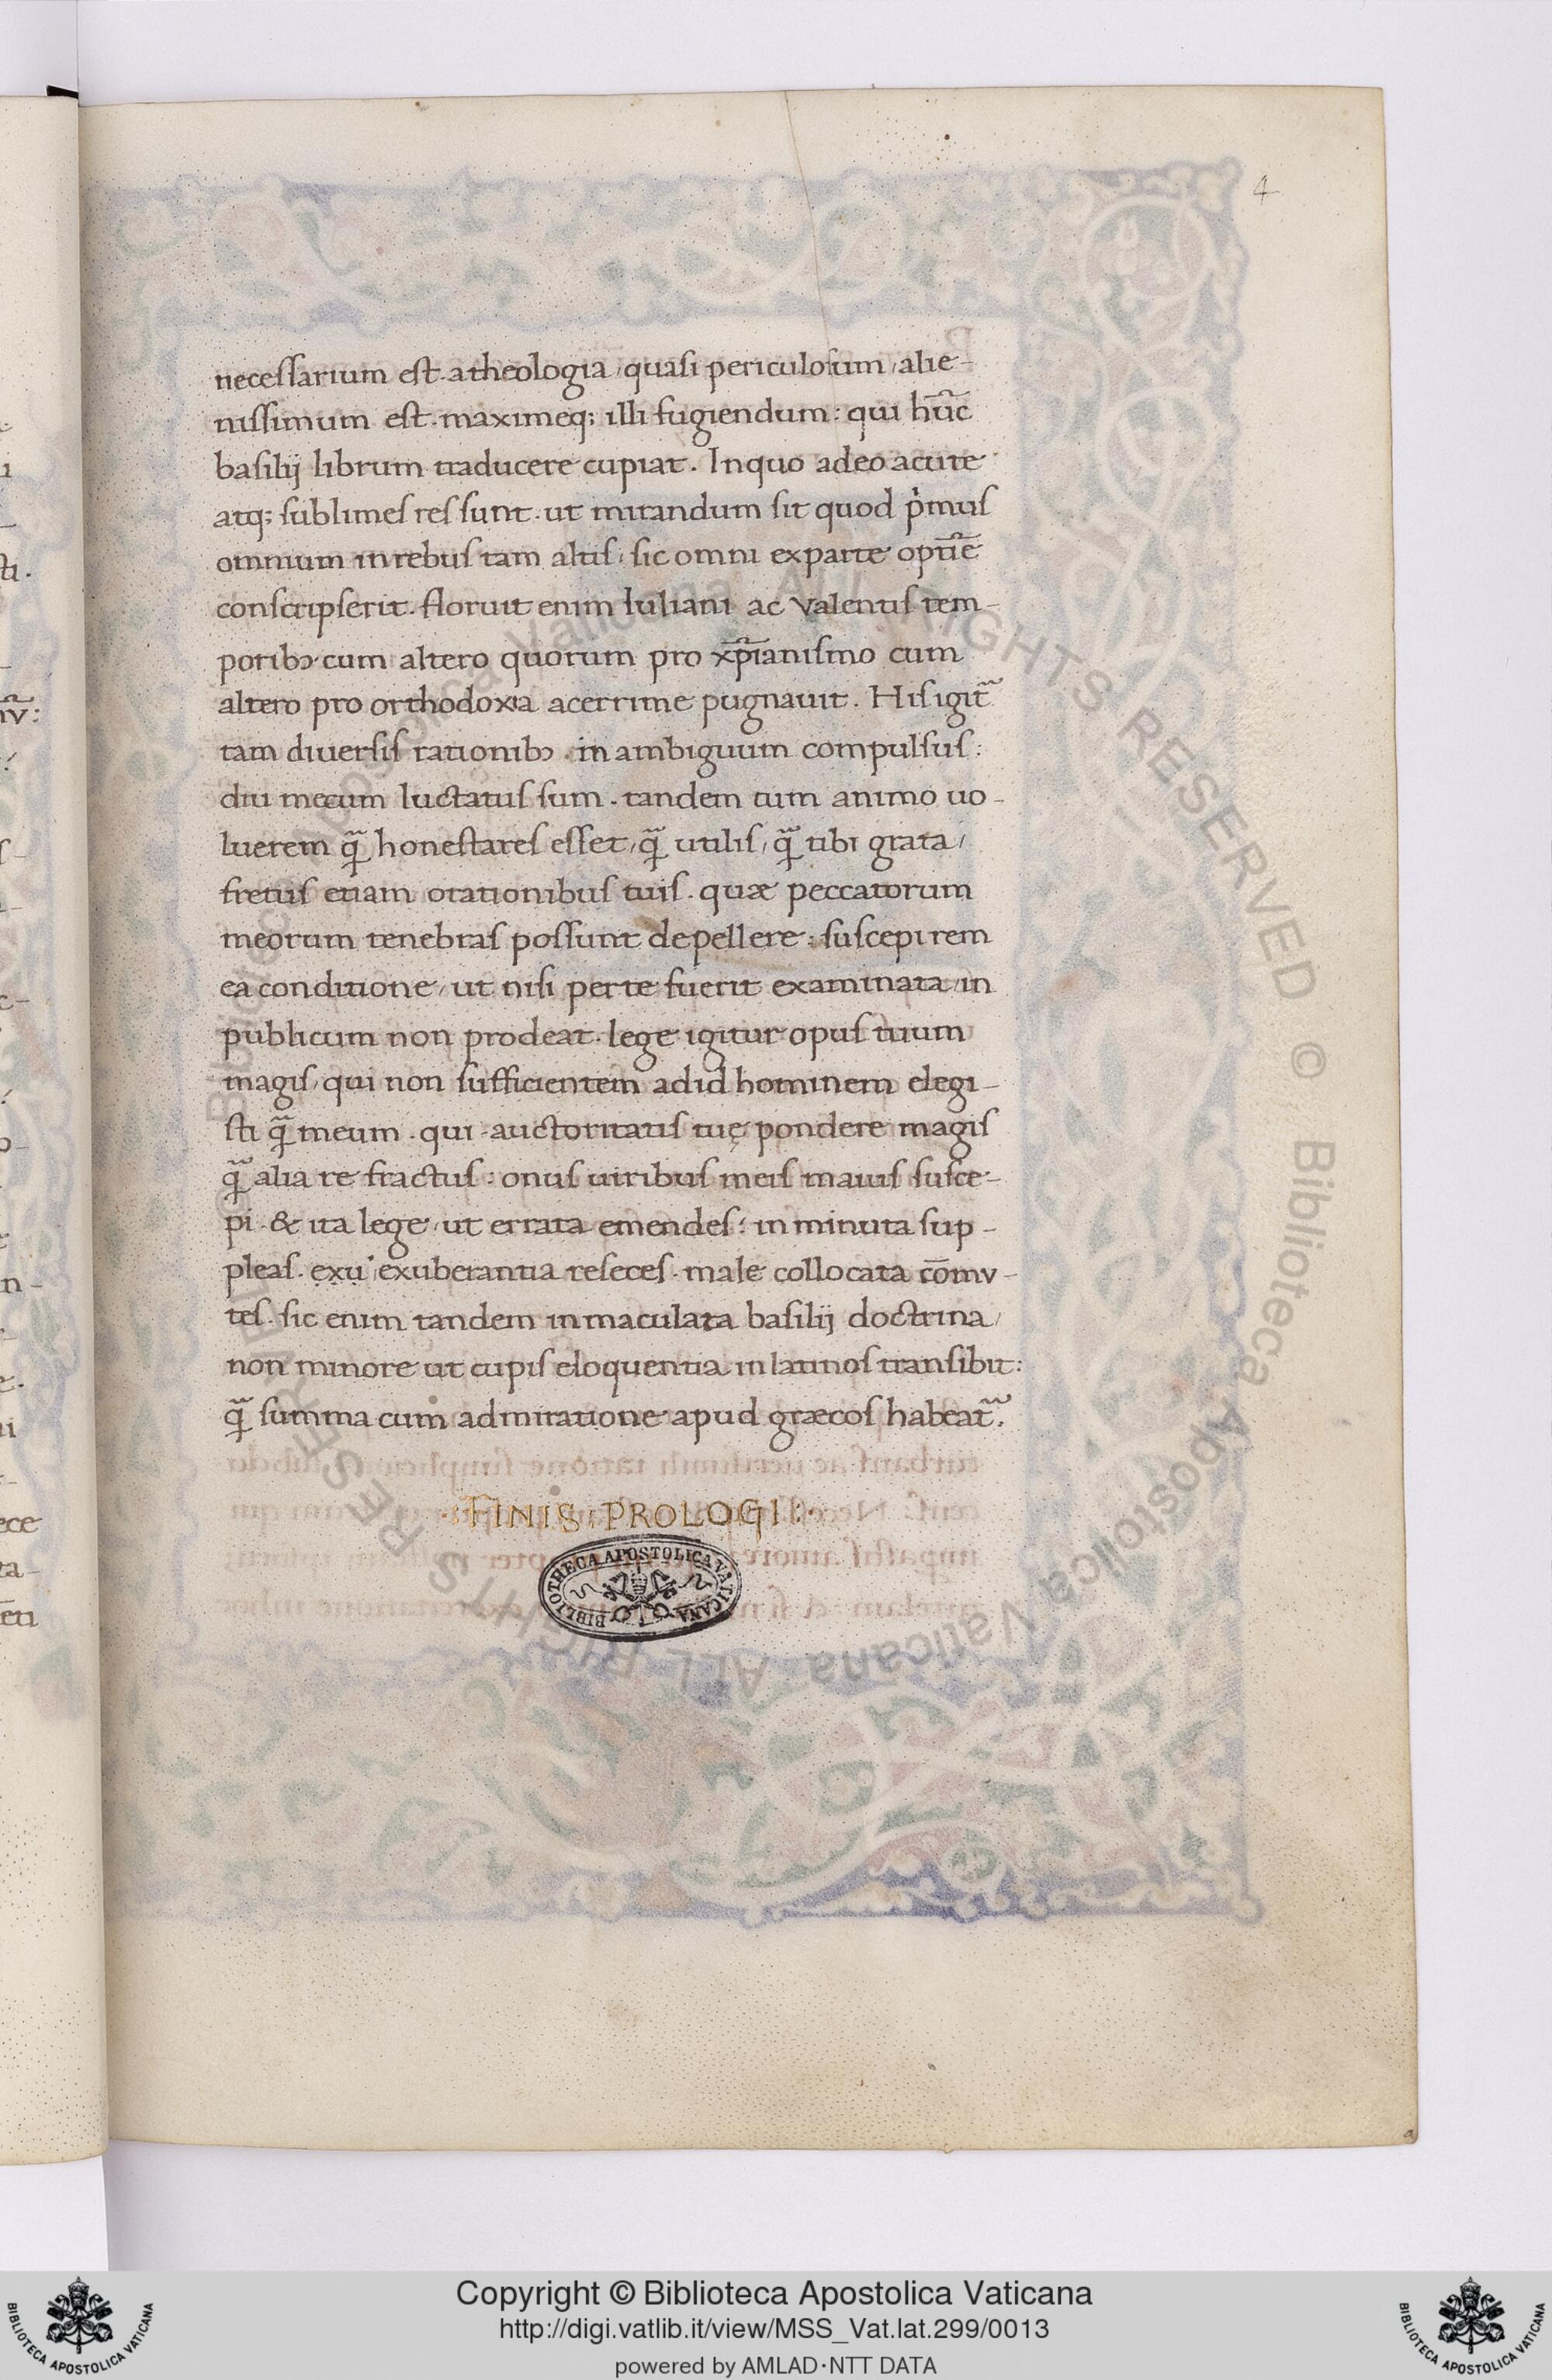 4
necessarium est. a theologia, quasi periculosum, alie-
nissimum est. maximeq; illi fugiendum: qui hūc
basilij librum traducere cupiat. In quo adeo acute
atq; sublimes res sunt. ut mirandum sit quod p̍mus
omnium in rebus tam altis, sic omni ex parte optīe
conscripserit. floruit enim Iuliani ac Valentis tem-
poribꝫ cum altero quorum pro xp̄ianismo cum
altero pro orthodoxia acerrime pugnauit. His igit᷑
tam diuersis rationibꝫ. in ambiguum compulsus:
diu mecum luctatus sum. tandem cum animo uo-
luerem q̃ honesta res esset, q̃ utilis, q̃ tibi grata,
fretus etiam orationibus tuis. quæ peccatorum
meorum tenebras possunt depellere: suscepi rem
ea conditione, ut nisi per te fuerit examinata, in
publicum non prodeat. lege igitur opus tuum
magis, qui non sufficientem ad id hominem elegi-
sti q̃ meum. qui auctoritatis tuę pondere magis
q̃ alia re fractus: onus uiribus meis maius susce-
pi. & ita lege, ut errata emendes: inminuta sup-
pleas. exu exuberantia reseces. male collocata cōmv-
tes. sic enim tandem inmaculata basilij doctrina,
non minore ut cupis eloquentia in latinos transibit:
q̃ summa cum admiratione apud græcos habeat᷑.
·:FINIS PROLOGI:·
BIBLIOTHECA APOSTOLICA VATICANA
Copyright © Biblioteca Apostolica Vaticana
http://digi.vatlib.it/view/MSS_Vat.lat.299/0013
powered by AMLAD·NTT DATA
BIBLIOTECA APOSTOLICA VATICANA
BIBLIOTECA APOSTOLICA VATICANA
© Biblioteca Apostolica Vaticana ALL RIGHTS RESERVED © Biblioteca Apostolica Vaticana ALL RIGHTS RESERVED